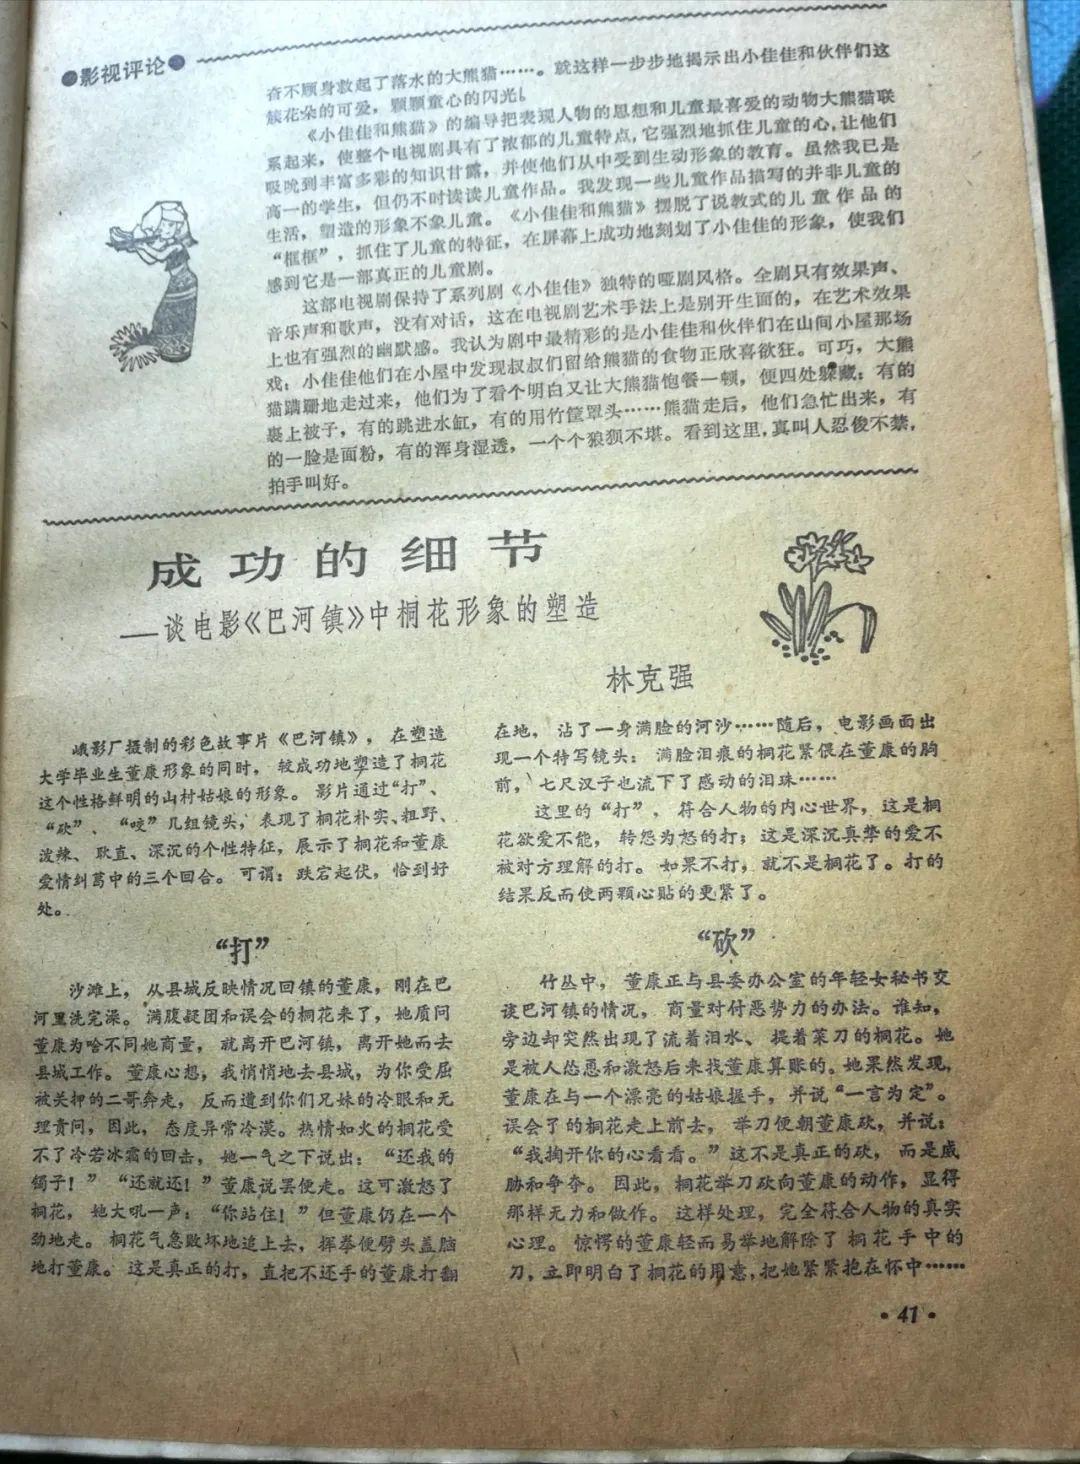 ●影视评论●
奋不顾身救起了落水的大熊猫……。就这样一步步地揭示出小佳佳和伙伴们这
簇花朵的可爱，颗颗童心的闪光！
《小佳佳和熊猫》的编导把表现人物的思想和儿童最喜爱的动物大熊猫联
系起来，使整个电视剧具有了浓郁的儿童特点，它强烈地抓住儿童的心，让他们
吸吮到丰富多彩的知识甘露，并使他们从中受到生动形象的教育。虽然我已是
高一的学生，但仍不时读读儿童作品。我发现一些儿童作品描写的并非儿童的
生活，塑造的形象不象儿童。《小佳佳和熊猫》摆脱了说教式的儿童作品的
“框框”，抓住了儿童的特征，在屏幕上成功地刻划了小佳佳的形象，使我们
感到它是一部真正的儿童剧。
这部电视剧保持了系列剧《小佳佳》独特的哑剧风格。全剧只有效果声、
音乐声和歌声，没有对话，这在电视剧艺术手法上是别开生面的，在艺术效果
上也有强烈的幽默感。我认为剧中最精彩的是小佳佳和伙伴们在山间小屋那场
戏：小佳佳他们在小屋中发现叔叔们留给熊猫的食物正欣喜欲狂。可巧，大熊
猫蹒跚地走过来，他们为了看个明白又让大熊猫饱餐一顿，便四处躲藏：有的
裹上被子，有的跳进水缸，有的用竹筐罩头……熊猫走后，他们急忙出来，有
的一脸是面粉，有的浑身湿透，一个个狼狈不堪。看到这里，真叫人忍俊不禁，
拍手叫好。
成功的细节
——谈电影《巴河镇》中桐花形象的塑造
林克强
峨影厂摄制的彩色故事片《巴河镇》，在塑造
大学毕业生董康形象的同时，较成功地塑造了桐花
这个性格鲜明的山村姑娘的形象。影片通过“打”、
“砍”、“咬”几组镜头，表现了桐花朴实、粗野、
泼辣、耿直、深沉的个性特征，展示了桐花和董康
爱情纠葛中的三个回合。可谓：跌宕起伏，恰到好
处。
“打”
沙滩上，从县城反映情况回镇的董康，刚在巴
河里洗完澡。满腹疑团和误会的桐花来了，她质问
董康为啥不同她商量，就离开巴河镇，离开她而去
县城工作。董康心想，我悄悄地去县城，为你受屈
被关押的二哥奔走，反而遭到你们兄妹的冷眼和无
理责问，因此，态度异常冷漠。热情如火的桐花受
不了冷若冰霜的回击，她一气之下说出：“还我的
镯子！”“还就还！”董康说罢便走。这可激怒了
桐花，她大吼一声：“你站住！”但董康仍在一个
劲地走。桐花气急败坏地追上去，挥拳便劈头盖脑
地打董康。这是真正的打，直把不还手的董康打翻
在地，沾了一身满脸的河沙……随后，电影画面出
现一个特写镜头：满脸泪痕的桐花紧偎在董康的胸
前，七尺汉子也流下了感动的泪珠……
这里的“打”，符合人物的内心世界，这是桐
花欲爱不能，转怨为怒的打；这是深沉真挚的爱不
被对方理解的打。如果不打，就不是桐花了。打的
结果反而使两颗心贴的更紧了。
“砍”
竹丛中，董康正与县委办公室的年轻女秘书交
谈巴河镇的情况，商量对付恶势力的办法。谁知，
旁边却突然出现了流着泪水、提着菜刀的桐花。她
是被人怂恿和激怒后来找董康算账的。她果然发现，
董康在与一个漂亮的姑娘握手，并说“一言为定”。
误会了的桐花走上前去，举刀便朝董康砍，并说：
“我掏开你的心看看。”这不是真正的砍，而是威
胁和争夺。因此，桐花举刀砍向董康的动作，显得
那样无力和做作。这样处理，完全符合人物的真实
心理。惊愕的董康轻而易举地解除了桐花手中的
刀，立即明白了桐花的用意，把她紧紧抱在怀中……
·41·